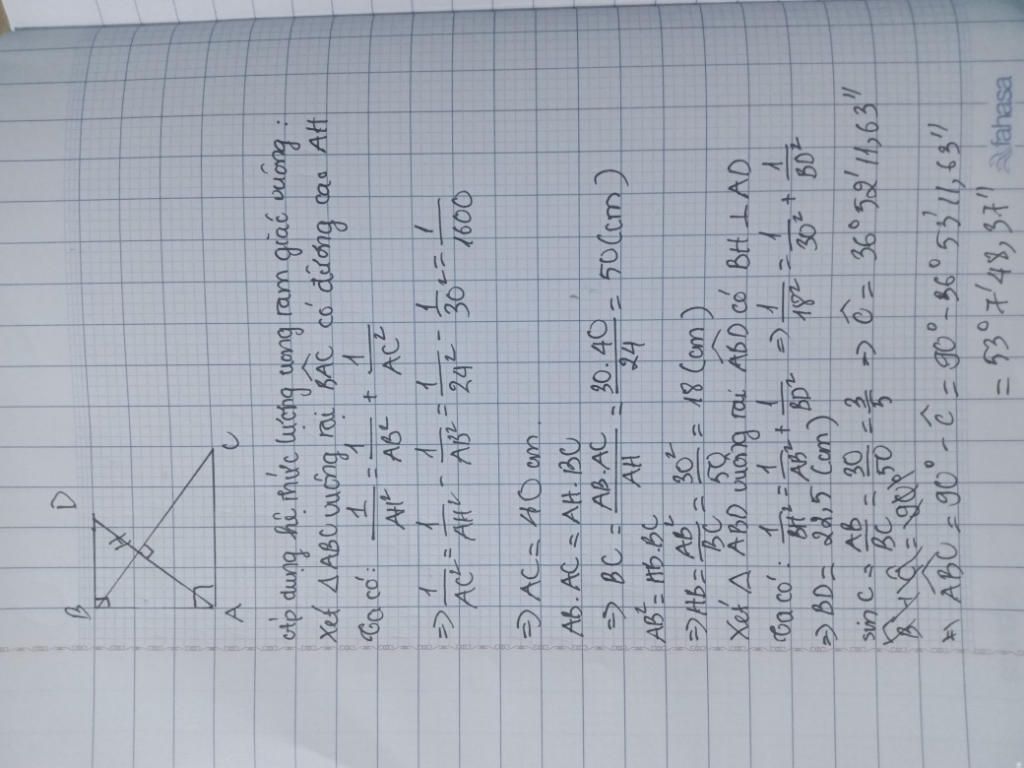 B D
H
A C
Áp dụng hệ thức lượng trong tam giác vuông :
Xét △ ABC vuông tại BAC có đường cao AH
Ta có : 1/AH² = 1/AB² + 1/AC²
=> 1/AC² = 1/AH² - 1/AB² = 1/24² - 1/30² = 1/1600
=> AC = 40 cm
AB. AC = AH. BC
=> BC = AB. AC/AH = 30. 40/24 = 50 (cm)
AB² = HB. BC
=> HB = AB²/BC = 30²/50 = 18 (cm)
Xét △ ABD vuông tại ABD có BH ⊥ AD
Ta có : 1/BH² = 1/AB² + 1/BD² => 1/18² = 1/30² + 1/BD²
=> BD = 22,5 (cm)
sin C = AB/BC = 30/50 = 3/5 => Ĉ = 36° 52' 11,63''
=> ABC = 90° - Ĉ = 90° - 36° 53' 11,63''
= 53° 7' 48,37''
fahasa